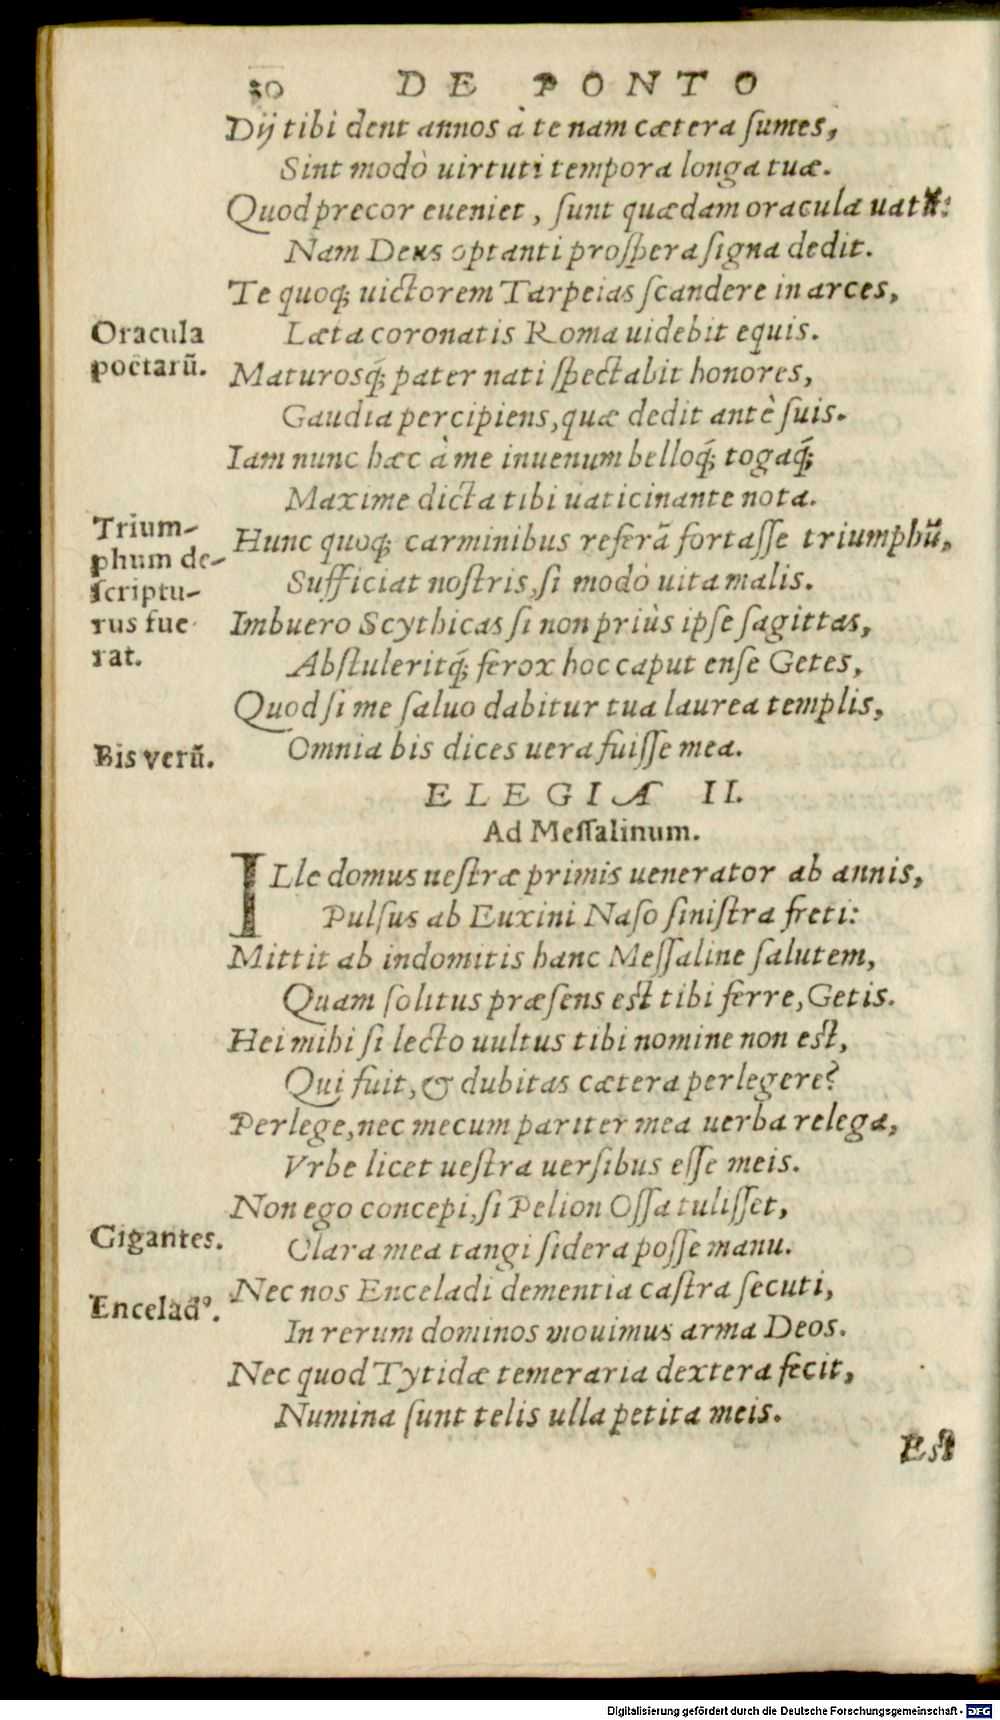 30 DE PONTO
Dij tibi dent annos à te nam cætera sumes,
Sint modò uirtuti tempora longa tuæ.
Quod precor eueniet, sunt quædam oracula uatũ:
Nam Deus optanti prospera signa dedit.
Te quoq; uictorem Tarpeias scandere in arces,
Oracula
Læta coronatis Roma uidebit equis.
poëtarũ.
Maturosq́; pater nati spectabit honores,
Gaudia percipiens, quæ dedit antè suis.
Iam nunc hæc à me iuuenum belloq́; togaq́;
Maxime dicta tibi uaticinante nota.
Trium-
phum de-
scriptu-
rus fue
rat.
Hunc quoq; carminibus referã fortasse triumphũ,
Sufficiat nostris, si modò uita malis.
Imbuero Scythicas si non priùs ipse sagittas,
Abstuleritq́; ferox hoc caput ense Getes,
Quod si me saluo dabitur tua laurea templis,
Omnia bis dices uera fuisse mea.
Bis verũ.
ELEGIA II.
Ad Messalinum.
ILle domus uestræ primis uenerator ab annis,
Pulsus ab Euxini Naso sinistra freti:
Mittit ab indomitis hanc Messaline salutem,
Quam solitus præsens est tibi ferre, Getis.
Hei mihi si lecto uultus tibi nomine non est,
Qui fuit, & dubitas cætera perlegere?
Perlege, nec mecum pariter mea uerba relega,
Vrbe licet uestra uersibus esse meis.
Non ego concepi, si Pelion Ossa tulisset,
Gigantes.
Clara mea tangi sidera posse manu.
Nec nos Enceladi dementia castra secuti,
Encelad⁹.
In rerum dominos mouimus arma Deos.
Nec quod Tytidæ temeraria dextera fecit,
Numina sunt telis ulla petita meis.
Est
Digitalisierung gefördert durch die Deutsche Forschungsgemeinschaft - DFG